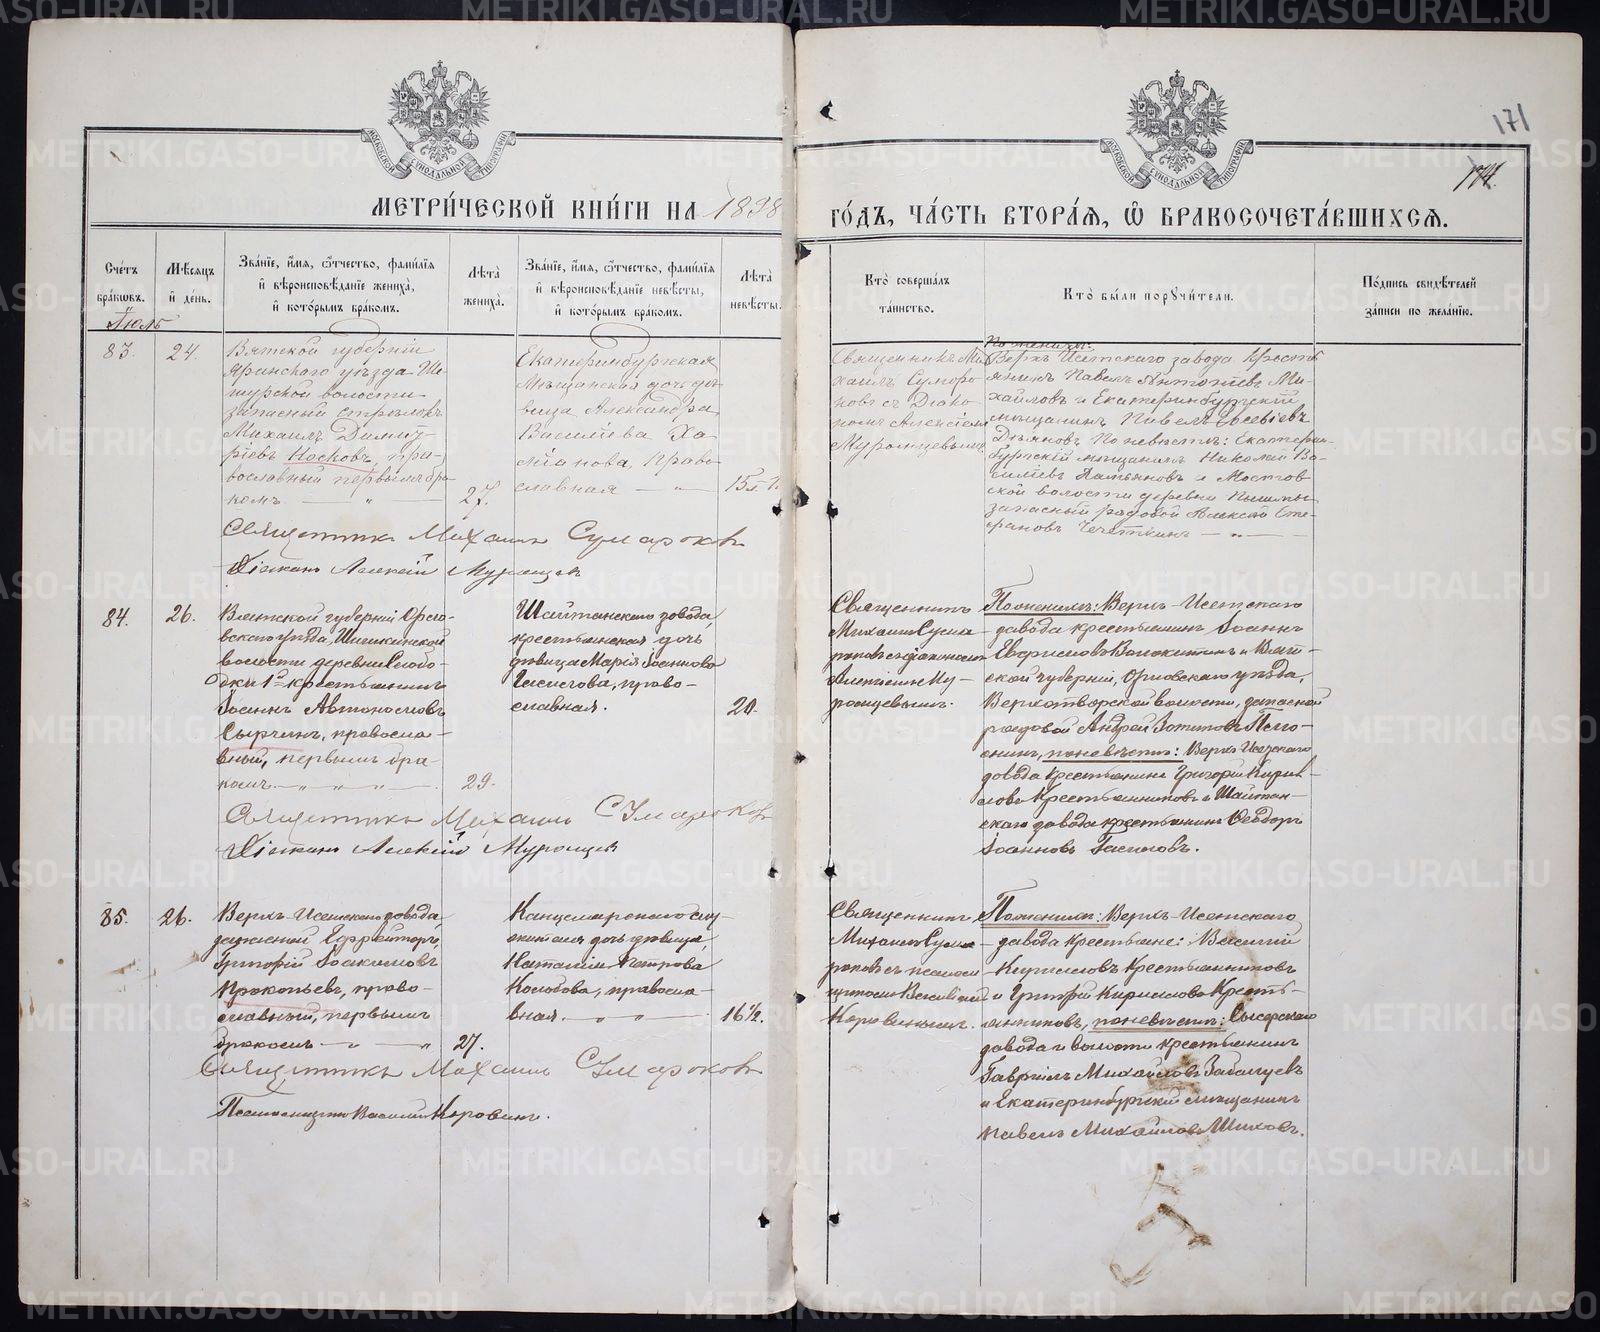 171
174.
МЕТРИ́ЧЕСКОЙ КНИ́ГИ НА 1898
ГО́ДЪ, ЧА́СТЬ ВТОРА́Я, Ѡ БРАКОСОЧЕТА́ВШИХСЯ.
Сче́тъ бра́кѡвъ.
Мѣ́сяцъ и́ де́нь.
Зва́нїе, и́мя, ѻ́тчество, фамилїя и́ вѣроисповѣ́данїе жениха̀, и́ кото́рымъ бра́комъ.
Лѣта̀ жениха̀.
Зва́нїе, и́мя, ѻ́тчество, фамилїя и́ вѣроисповѣ́данїе невѣ́сты, и́ кото́рымъ бра́комъ.
Лѣта̀ невѣ́сты.
Кто̀ соверша́лъ та́инство.
Кто̀ бы́ли порꙋчи́тели.
По́дпись свидѣ́телей за́писи по жела́нїю.
Іюль
83.
24.
Вятской губерніи
Яранскаго уѣзда Ше-
турской волости
запасный стрѣлокъ
Михаилъ Димит-
ріевъ Носковъ, пра-
вославный первымъ бра-
комъ — „ —
27.
Екатеринбургская
Мѣщанская дочь дѣ-
вица Александра
Васильева
православная — „
15
Священникъ Ми-
хаилъ Сумаро-
ковъ съ Діако-
номъ Алексіемъ
Муромцевымъ
По женихѣ:
Верхъ Исетскаго завода Кресть-
янинъ Павелъ Антоніевъ Ми-
хайловъ и Екатеринбургскій
мѣщанинъ Павелъ
По невѣстѣ: Екатерин-
бургскій мѣщанинъ Николай Ва-
сильевъ и Мостов-
ской волости деревни Пышмы
запасный рядовой Алексѣй Сте-
фановъ Чечеткинъ — „ —
Священникъ Михаилъ Сумароковъ
Діаконъ Алексій Муромцевъ
84.
26.
Вятской губерніи Орло-
вскаго уѣзда,
волости деревни Слобо-
дки 1й крестьянинъ
Іоаннъ Автономовъ
Сырчинъ, правосла-
вный, первымъ бра-
комъ. — „ — „ — „ —
29.
Шайтанскаго завода,
крестьянская дочь
дѣвица Марія Іоаннова
право-
славная.
20.
Священникъ
Михаилъ Сума-
роковъ съ діакономъ
Алексіемъ Му-
ромцевымъ.
По женихѣ: Верхъ-Исетскаго
завода крестьянинъ Іоаннъ
и Вят-
ской губерніи, Орловскаго уѣзда,
волости, запасной
рядовой Андрей Зотиковъ
по невѣстѣ: Верхъ Исетскаго
завода крестьянинъ Григорій Кирил-
ловъ Крестьянниковъ и Шайтан-
скаго завода крестьянинъ Ѳеодоръ
Іоанновъ
Священникъ Михаилъ Сумароковъ
Діаконъ Алексій Муромцевъ
85.
26.
Верхъ-Исетскаго завода
запасной Ефрейторъ,
Григорій Іоакимовъ
Прокопьевъ, право-
славный, первымъ
бракомъ — „ — „
27.
Канцелярскаго слу-
жителя дочь дѣвица,
Наталія Петрова
Колобова, правосла-
вная. — „ — „ —
16½.
Священникъ
Михаилъ Сума-
роковъ съ псалом-
щикомъ Василіемъ
Коровинымъ.
По женихѣ: Верхъ-Исетскаго
завода крестьяне: Василій
Кирилловъ Крестьянниковъ
и Григорій Кирилловъ Кресть-
янниковъ, по невѣстѣ: Сысертскаго
завода и волости крестьянинъ
Гавріилъ Михайловъ
и Екатеринбургскій мѣщанинъ
Павелъ Михайловъ
Священникъ Михаилъ Сумароковъ
Псаломщикъ Василій Коровинъ.
METRIKI.GASO-URAL.RU